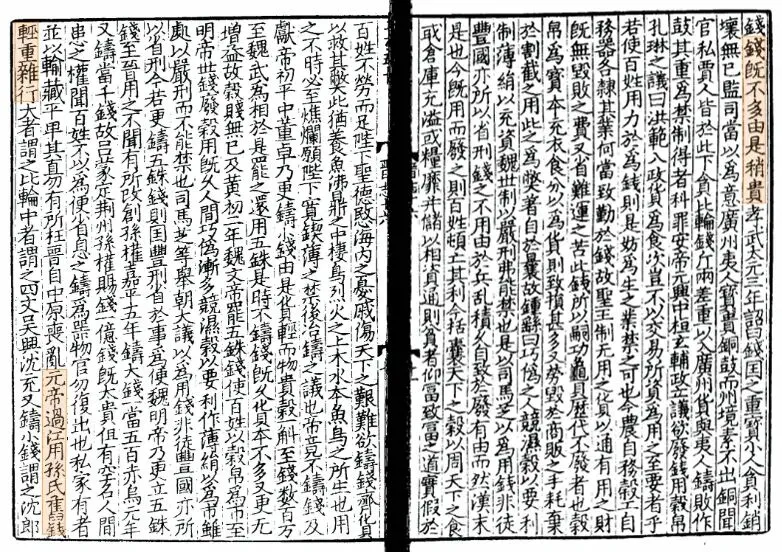 錢錢既不多由是稍貴孝武太元三年詔曰錢囯之重寶小人貪利銷
壞無已監司當以為意廣州夷人寶貴銅鼓而州境素不出銅聞
官私賈人皆於此下貪比輪錢斤兩差重以入廣州貨與夷人鑄敗作
鼓其重為禁制得者科罪安帝元興中桓玄輔政立議欲廢錢用穀帛
孔琳之議曰洪範八政貨為食次豈不以交易所資為用之至要者乎
若使百姓用力於為錢則是妨為生之業禁之可也今農自務穀工自
務器各隸其業何嘗致勤於錢故聖王制無用之貨以通有用之財
既無毀敗之費又省難運之苦此錢所以嗣功龜貝歷代不廢者也穀
帛為寶本充衣食分以為貨則致損甚多又勞毀於商販之手耗棄
於割截之用此之為弊著自於曩故鍾繇曰巧偽之人競濕穀以要利
制薄絹以充資魏世制以嚴刑弗能禁也是以司馬芝以為用錢非徒
豐國亦所以省刑錢之不用由於兵乱積久自致於廢有由而然漢末
是也今既用而廢之則百姓頓亡其利今括囊天下之穀以周天下之食
或倉庫充溢或糧靡并儲以相資通則貧者仰富致富之道實假於
百姓不勞而是陛下聖德愍海內之憂戚傷天下之艱難欲鑄錢齊貨
以救其弊此猶養魚沸鼎之中棲鳥烈火之上木水本魚鳥之所生也用
之不時必至燋爛願陛下寬鍥薄之禁後冶鑄之議也帝竟不鑄錢及
獻帝初平中董卓乃更鑄小錢由是貨輕而物貴穀一斛至錢數百万
至魏武為相於是罷之還用五銖是時不鑄錢既久貨本不多又更无
增益故穀賤無已及黃初二年魏文帝罷五銖錢使百姓以穀帛為市至
明帝世錢廢穀用既久人間巧偽漸多競濕穀以要利作薄絹以為市雖
處以嚴刑而不能禁也司馬芝等舉朝大議以為用錢非徒豐國亦所
以省刑今若更鑄五銖錢則囯豐刑省於事為便魏明帝乃更立五銖
錢至晉用之不聞有所改創孫權嘉平五年鑄大錢一當五百赤烏元年
又鑄當千錢故呂蒙定荊州孫權賜錢一億錢既太貴但有空名人間
患之權聞百姓不以為便省息之鑄為器物官勿復出也私家有者
並以輸藏平卑其直勿有所枉晉自中原喪亂元帝過江用孫氏舊錢
輕重雜行大者謂之比輪中者謂之四文吳興沈充又鑄小錢謂之沈郎